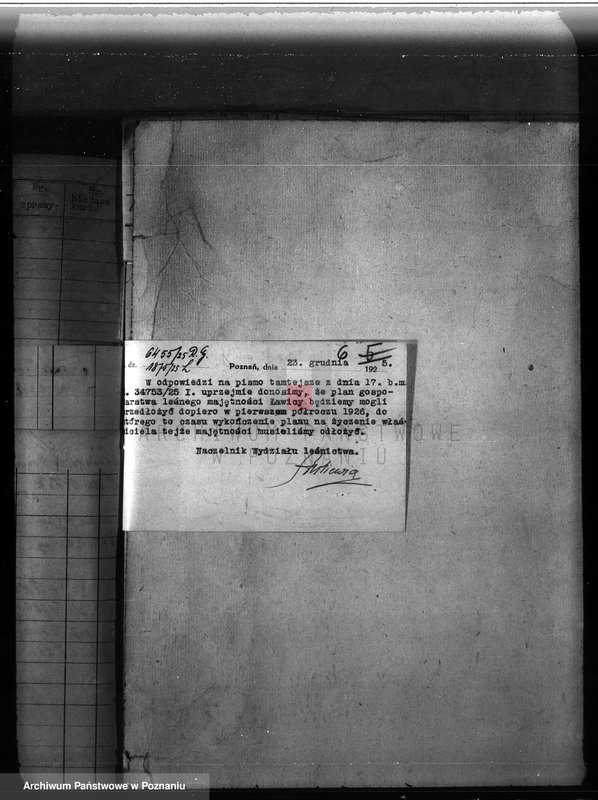 Nr.
sprawy.
Nr.
bieżące
kart.
6455/25 R.G.
dz. 1875/25 L
6 5
Poznań, dnia 23. grudnia 192 5.
W odpowiedzi na pismo tamtejsze z dnia 17. b.m.
. 34753/25 I. uprzejmie donosimy, że plan gospo-
arstwa leśnego majętności Ławicy będziemy mogli
rzedłożyć dopiero w pierwszem półroczu 1926, do
tórego to czasu wykończenie planu na życzenie właś-
iciela tejże majętności musieliśmy odłożyć.
Naczelnik Wydziału leśnictwa.
W POZNANIU
Archiwum Państwowe w Poznaniu